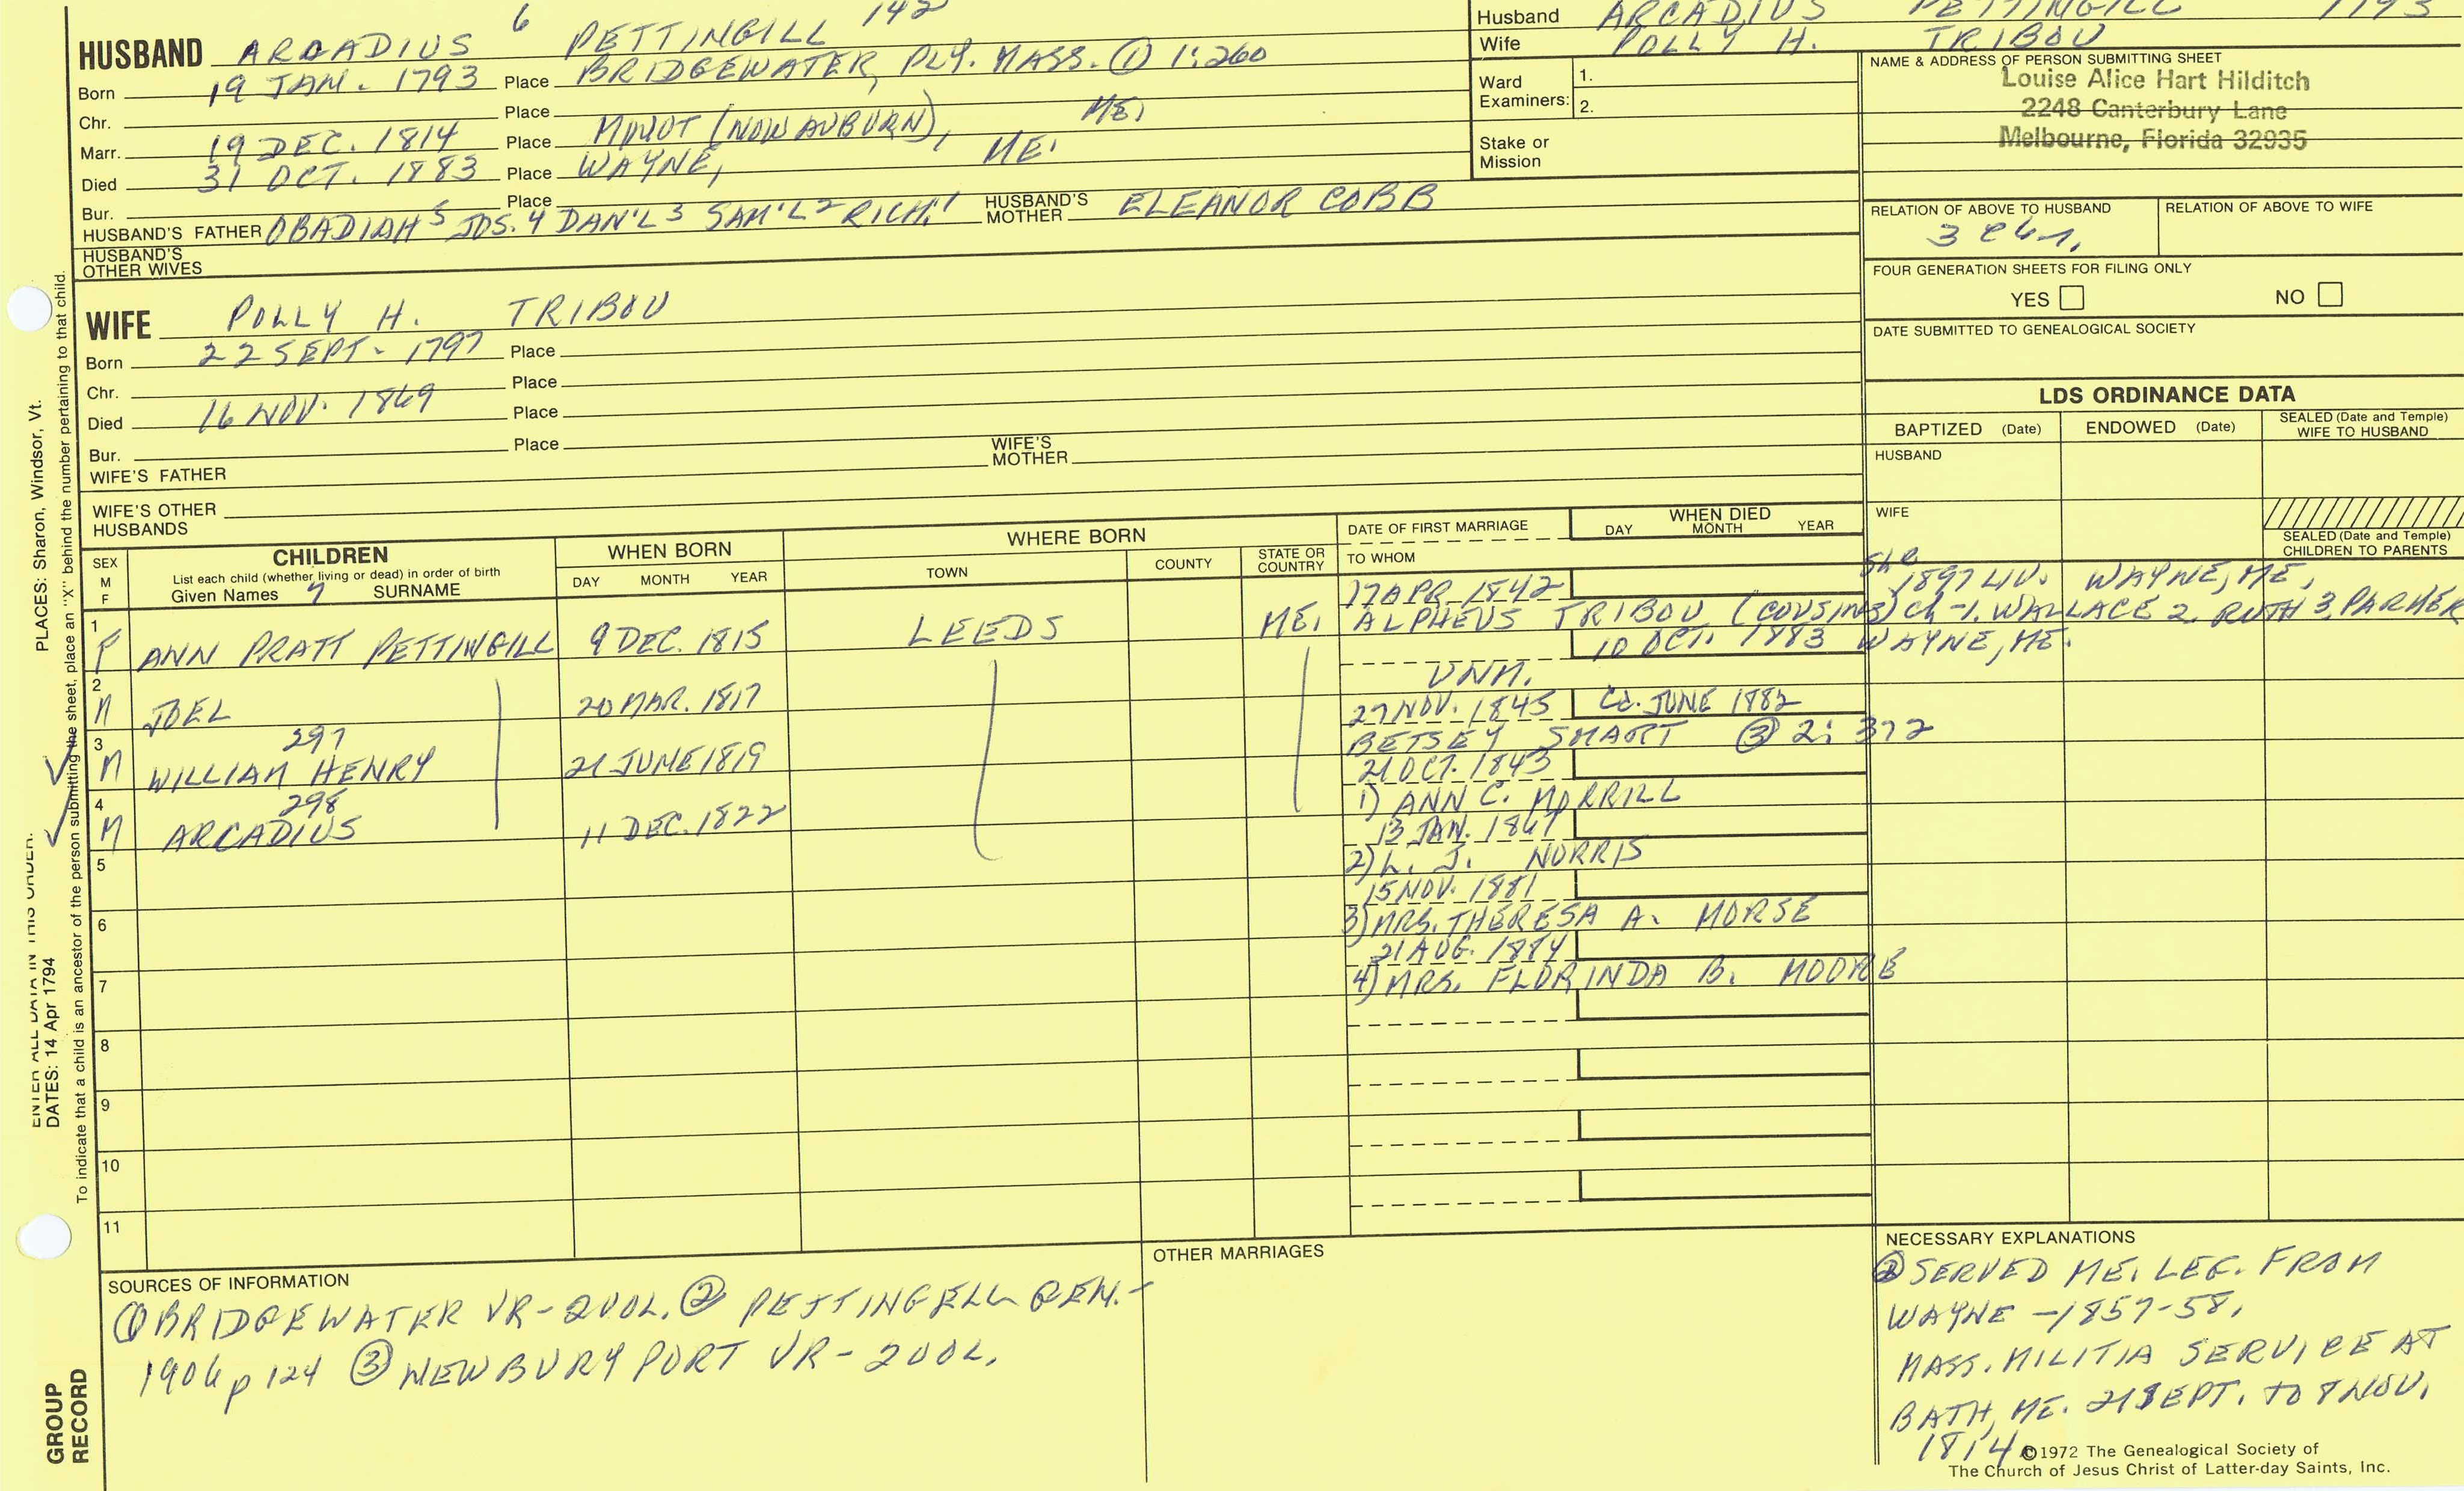 HUSBAND ARCADIUS 6 PETTINGILL 142
Born 19 JAN. 1793 Place BRIDGEWATER, PLY. MASS. ① 1:260
Chr. Place
Marr. 19 DEC. 1814 Place MINOT (NOW AUBURN), ME.
Died 31 OCT. 1883 Place WAYNE, ME.
Bur. Place
HUSBAND'S FATHER OBADIAH 5 JOS. 4 DAN'L 3 SAM'L 2 RICH. 1 HUSBAND'S MOTHER ELEANOR COBB
HUSBAND'S OTHER WIVES
WIFE POLLY H. TRIBOU
Born 22 SEPT. 1797 Place
Chr. Place
Died 16 NOV. 1869 Place
Bur. Place
WIFE'S FATHER WIFE'S MOTHER
WIFE'S OTHER HUSBANDS
Husband ARCADIUS PETTINGILL 1793
Wife POLLY H. TRIBOU
Ward Examiners: 1.
2.
Stake or Mission
NAME & ADDRESS OF PERSON SUBMITTING SHEET
Louise Alice Hart Hilditch
2248 Canterbury Lane
Melbourne, Florida 32935
RELATION OF ABOVE TO HUSBAND RELATION OF ABOVE TO WIFE
FOUR GENERATION SHEETS FOR FILING ONLY
YES NO
DATE SUBMITTED TO GENEALOGICAL SOCIETY
LDS ORDINANCE DATA
BAPTIZED (Date) ENDOWED (Date) SEALED (Date and Temple) WIFE TO HUSBAND
HUSBAND
WIFE
SEALED (Date and Temple) CHILDREN TO PARENTS
SEX M F
CHILDREN
List each child (whether living or dead) in order of birth
Given Names SURNAME
WHEN BORN
DAY MONTH YEAR
WHERE BORN
TOWN COUNTY STATE OR COUNTRY
DATE OF FIRST MARRIAGE
TO WHOM
WHEN DIED
DAY MONTH YEAR
17 APR 1842 She 1897 LIV. WAYNE, ME,
1 F ANN PRATT PETTINGILL 9 DEC. 1815 LEEDS ME. ALPHEUS TRIBOU (COUSINS) CH -1. WALLACE 2. RUTH 3. PARKER
10 OCT. 1883 WAYNE, ME.
2 M JOEL 20 MAR. 1817 UNM.
27 NOV. 1845 Cd. JUNE 1882
3 M 297 WILLIAM HENRY 21 JUNE 1819 BETSEY SMART ③ 2: 372
21 OCT. 1843
4 M 298 ARCADIUS 11 DEC. 1822 1) ANN C. MORRILL
13 JAN. 1867
5 2) L. J. NORRIS
15 NOV. 1881
6 3) MRS. THERESA A. MORSE
21 AUG. 1884
7 4) MRS. FLORINDA B. MOORE
8
9
10
11
SOURCES OF INFORMATION
① BRIDGEWATER VR-2VOL. ② PETTINGELL GEN.-
1906 p 124 ③ NEWBURYPORT VR-2VOL.
OTHER MARRIAGES
NECESSARY EXPLANATIONS
② SERVED ME. LEG. FROM
WAYNE -1857-58,
MASS. MILITIA SERVICE AT
BATH, ME. 21 SEPT. TO 8 NOV.
1814
©1972 The Genealogical Society of
The Church of Jesus Christ of Latter-day Saints, Inc.
ENTER ALL DATA IN THIS ORDER:
DATES: 14 Apr 1794 PLACES: Sharon, Windsor, Vt.
To indicate that a child is an ancestor of the person submitting the sheet, place an "X" behind the number pertaining to that child.
GROUP RECORD